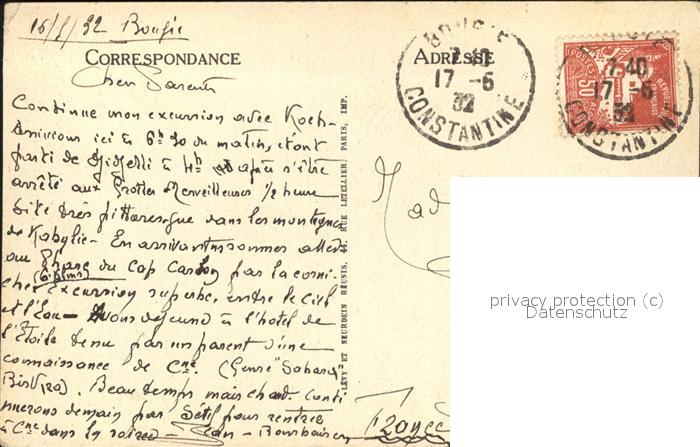 16/6/32 Bougie
CORRESPONDANCE
ADRESSE
Chers Parents
Continue mon excursion avec Koch-
Arrivons ici à 6h30 du matin, étant
parti de Djidjelli à 4h après s'être
arrêté aux Grottes Merveilleuses 1/2 heure
Site très pittoresque dans les montagnes
de Kabylie - En arrivant sommes allés
au Phare du Cap Carbon par la corni-
(6 Klms)
che. Excursion superbe, entre le Ciel
et l'Eau - Avons déjeuné à l'hotel de
l'Étoile tenu par un parent d'une
connaissance de Cne (Genre Sahara
Beau temps mais chaud. Conti
nuerons demain par Sétif pour rentrer
à Cne dans la soirée -
BOUGIE
7·40
17 -6
32
CONSTANTINE
POSTES
50
RÉPUBLIQUE
FRANÇAISE
7·40
17 -6
32
CONSTANTINE
LÉVY ET NEURDEIN RÉUNIS, 44, RUE LETELLIER, PARIS, IMP.
Mad
privacy protection (c)
Datenschutz